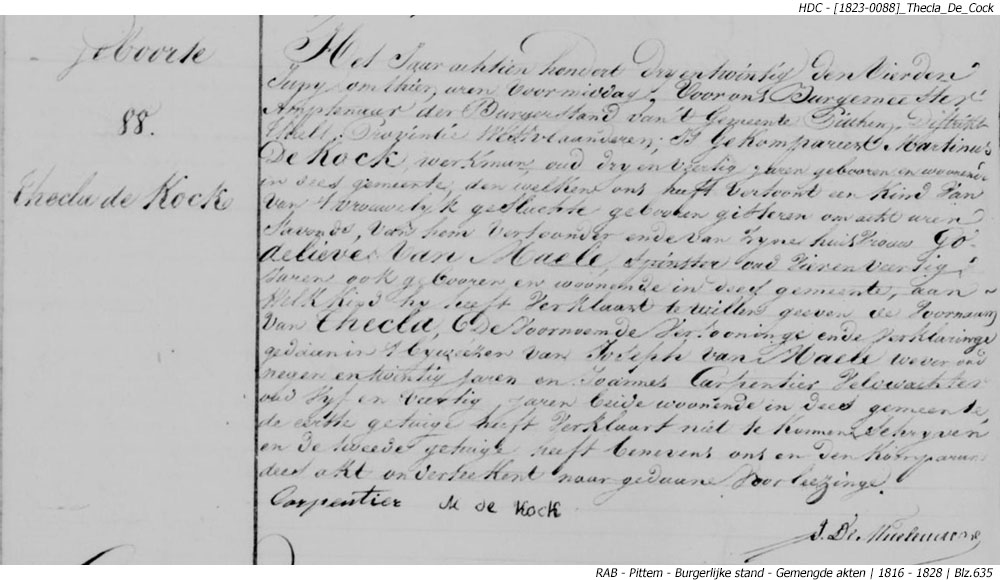 HDC - [1823-0088]_Thecla_De_Cock
geboorte
88.
Thecla de Kock
Het Jaar achtien hondert dry entwintig den Vierden
Juny om thien uren Voormiddag, Voor ons Burgemeester
Amptenaer der Burgerstand van 't Gemeente Pitthem, Distrikt
Thielt, Proventie Westvlaanderen; Is Gekompareert Martinus
De Kock, werkman, oud dry en veertig jaren gebooren en woonende
in deese gemeente, den welken ons heeft Vertoont een Kind Van
van 't vrouwelyk geslachte gebooren gisteren om acht uren
Savonds, Van hem Vertoonder ende van Zyne huisvrouw Go-
delieve Van Maele, spinster oud Vier en Veertig
Jaren ook gebooren en woonende in deese gemeente, aan
Welk Kind hy heeft Verklaart te willen geeven de Voornaam
Van Thecla, De Voornoemde Vertooninge ende Verklaringe
gedaan in 't byweezen van Joseph van Maele wever oud
negen en twintig jaren en Joannes Carpentier Veldwachter
oud Vyf en Veertig jaren beide woonende in deese gemeente
de eerste getuige heeft Verklaart niet te Konnen Schryven
en de tweede getuige heeft benevens ons en den Komparant
dees akt onderteekent naar gedaane Voorleezinge.
Carpentier M de Kock
J. De
RAB - Pittem - Burgerlijke stand - Gemengde akten | 1816 - 1828 | Blz.635